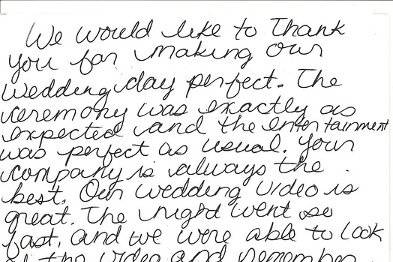 We would like to Thank
you for making our
wedding day perfect. The
ceremony was exactly as
expected and the entertainment
was perfect as usual. Your
company is always the
best. Our wedding video is
great. The night went so
fast, and we were able to look
at the video and remember